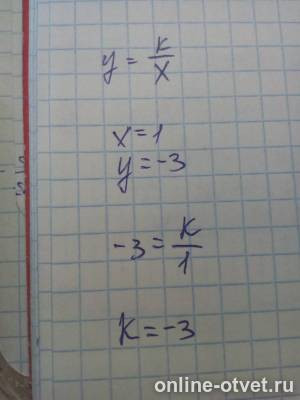 y = k/x
x = 1
y = -3
-3 = k/1
k = -3
online-otvet.ru